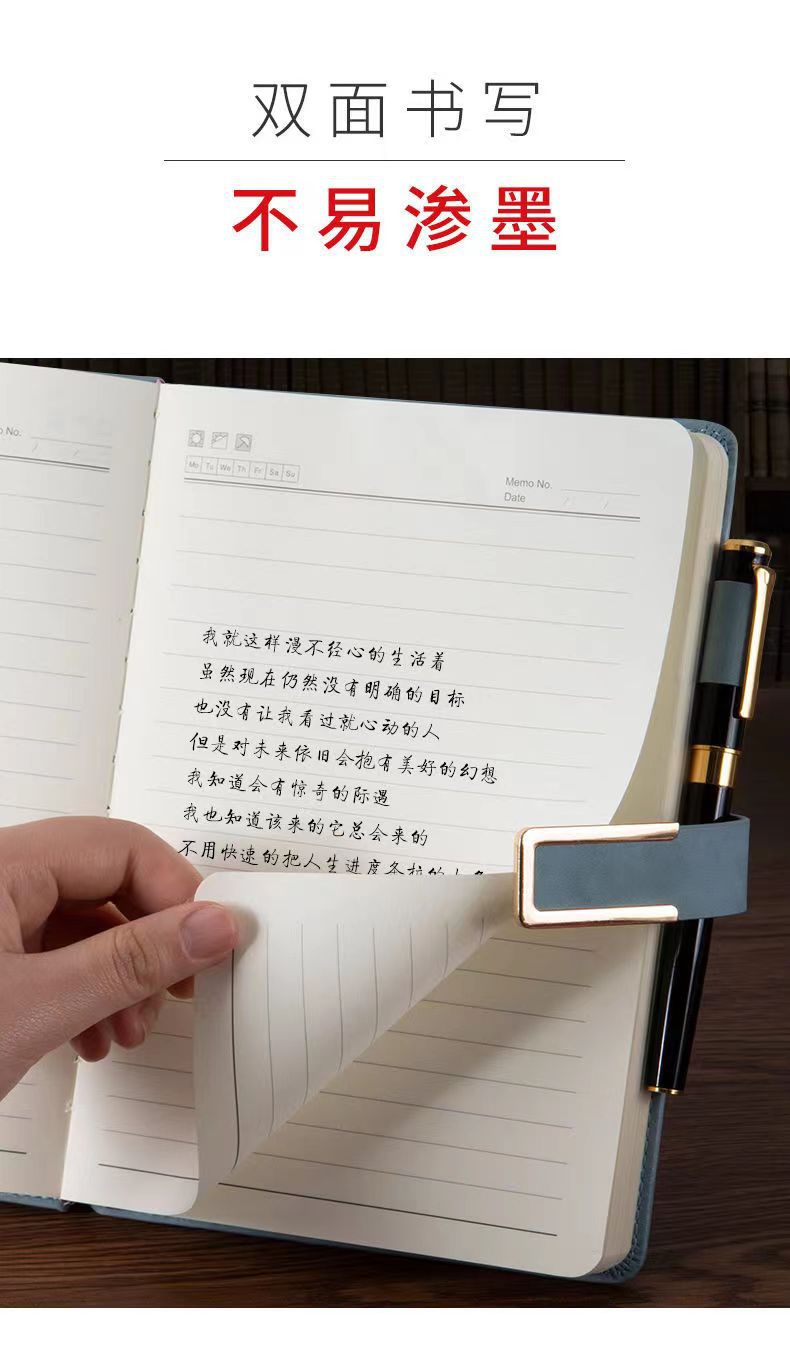 双面书写
不易渗墨
No.
Mo Tu We Th Fr Sa Su
Memo No.
Date
我就这样漫不经心的生活着
虽然现在仍然没有明确的目标
也没有让我看过就心动的人
但是对未来依旧会抱有美好的幻想
我知道会有惊奇的际遇
我也知道该来的它总会来的
不用快速的把人生进度条拉的